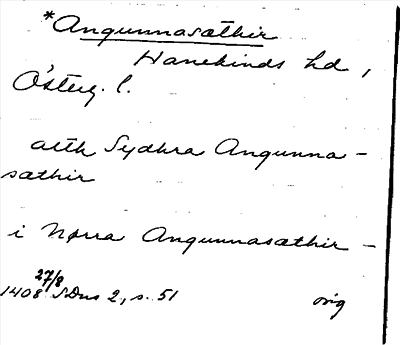 *Angunnasæthir
Hanekinds hd,
Österg. l.
atth Sydhra Angunna-
sæthir
i Nørra Angunnasæthir -
27/8
1408 SDns 2, s. 51 orig